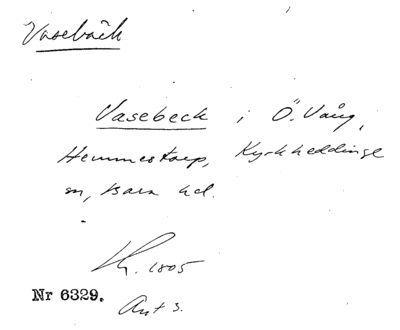 Vasebäck
Vasebeck i Ö. Vång,
Hemmestorp, Kyrkheddinge
sn, Bara hd.
Kh. 1805
Nr 6329.
Akt 3.